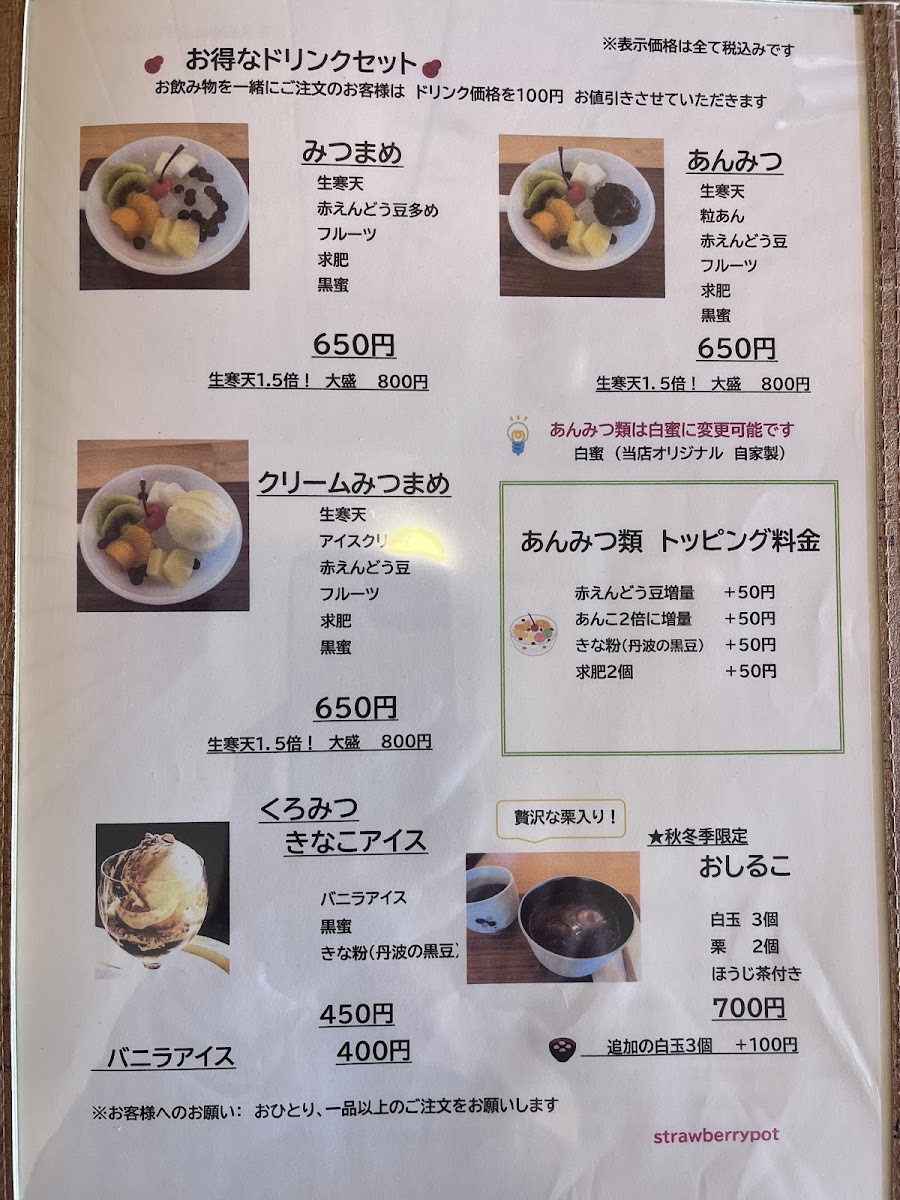 ※表示価格は全て税込みです
お得なドリンクセット
お飲み物を一緒にご注文のお客様は ドリンク価格を100円 お値引きさせていただきます
みつまめ
生寒天
赤えんどう豆多め
フルーツ
求肥
黒蜜
650円
生寒天1.5倍! 大盛 800円
あんみつ
生寒天
粒あん
赤えんどう豆
フルーツ
求肥
黒蜜
650円
生寒天1.5倍! 大盛 800円
あんみつ類は白蜜に変更可能です
白蜜（当店オリジナル 自家製）
クリームみつまめ
生寒天
アイスクリ
赤えんどう豆
フルーツ
求肥
黒蜜
650円
生寒天1.5倍! 大盛 800円
あんみつ類 トッピング料金
赤えんどう豆増量 +50円
あんこ2倍に増量 +50円
きな粉(丹波の黒豆) +50円
求肥2個 +50円
くろみつ
きなこアイス
バニラアイス
黒蜜
きな粉(丹波の黒豆)
450円
バニラアイス 400円
贅沢な栗入り!
★秋冬季限定
おしるこ
白玉 3個
栗 2個
ほうじ茶付き
700円
追加の白玉3個 +100円
※お客様へのお願い: おひとり、一品以上のご注文をお願いします
strawberrypot